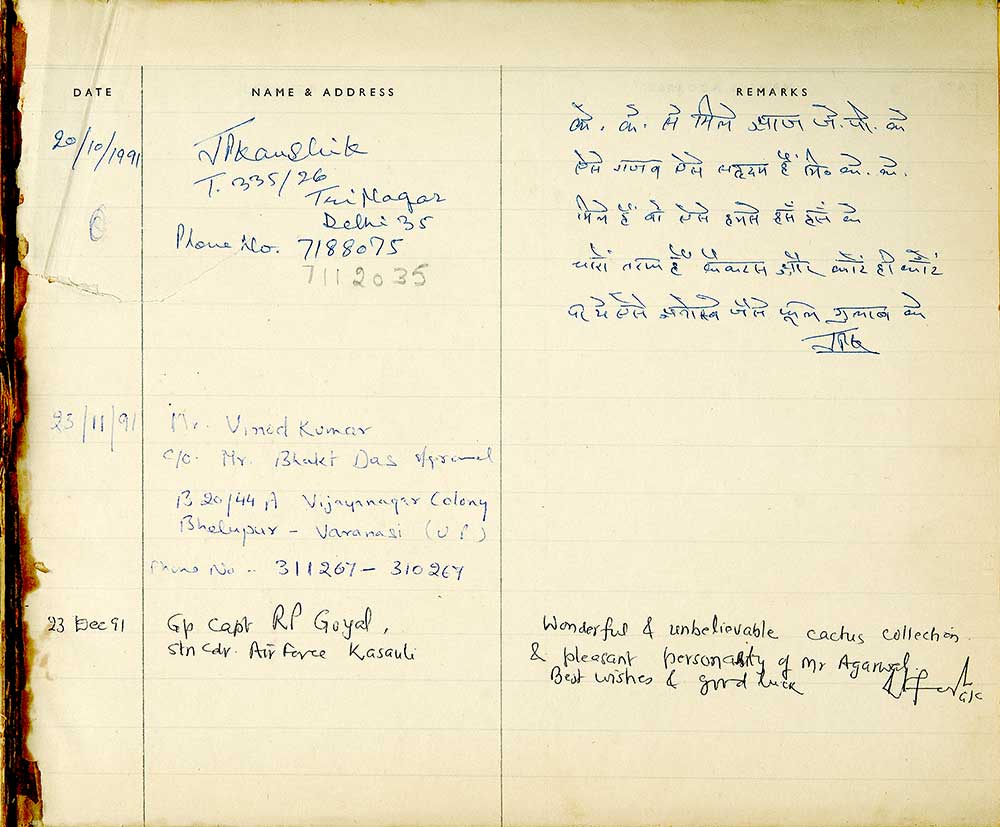 DATE NAME & ADDRESS REMARKS
20/10/1991
JPKaushik
T. 335/26
Tri Nagar
Delhi 35
Phone No. 7188075
7112035
के. के. से मिले आज जे. पी. के
ऐसे गजब ऐसे सहृदय हैं मि० के. के.
मिले हैं वो ऐसे हमसे हँस हँस के
चारों तरफ हैं कैकटस और कांटे ही कांटे
पर ये ऐसे जैसे फूल गुलाब के
JPK
23/11/91
Mr. Vinod Kumar
c/o. Mr. Bhakt Das
B 20/44 A Vijayanagar Colony
Bhelupur - Varanasi (U P)
Phone No - 311267 - 310267
23 Dec 91
Gp Capt RP Goyal,
Stn Cdr. Air Force Kasauli
Wonderful & unbelievable cactus collection
& pleasant personality of Mr Agarwal.
Best wishes & good luck
G/C